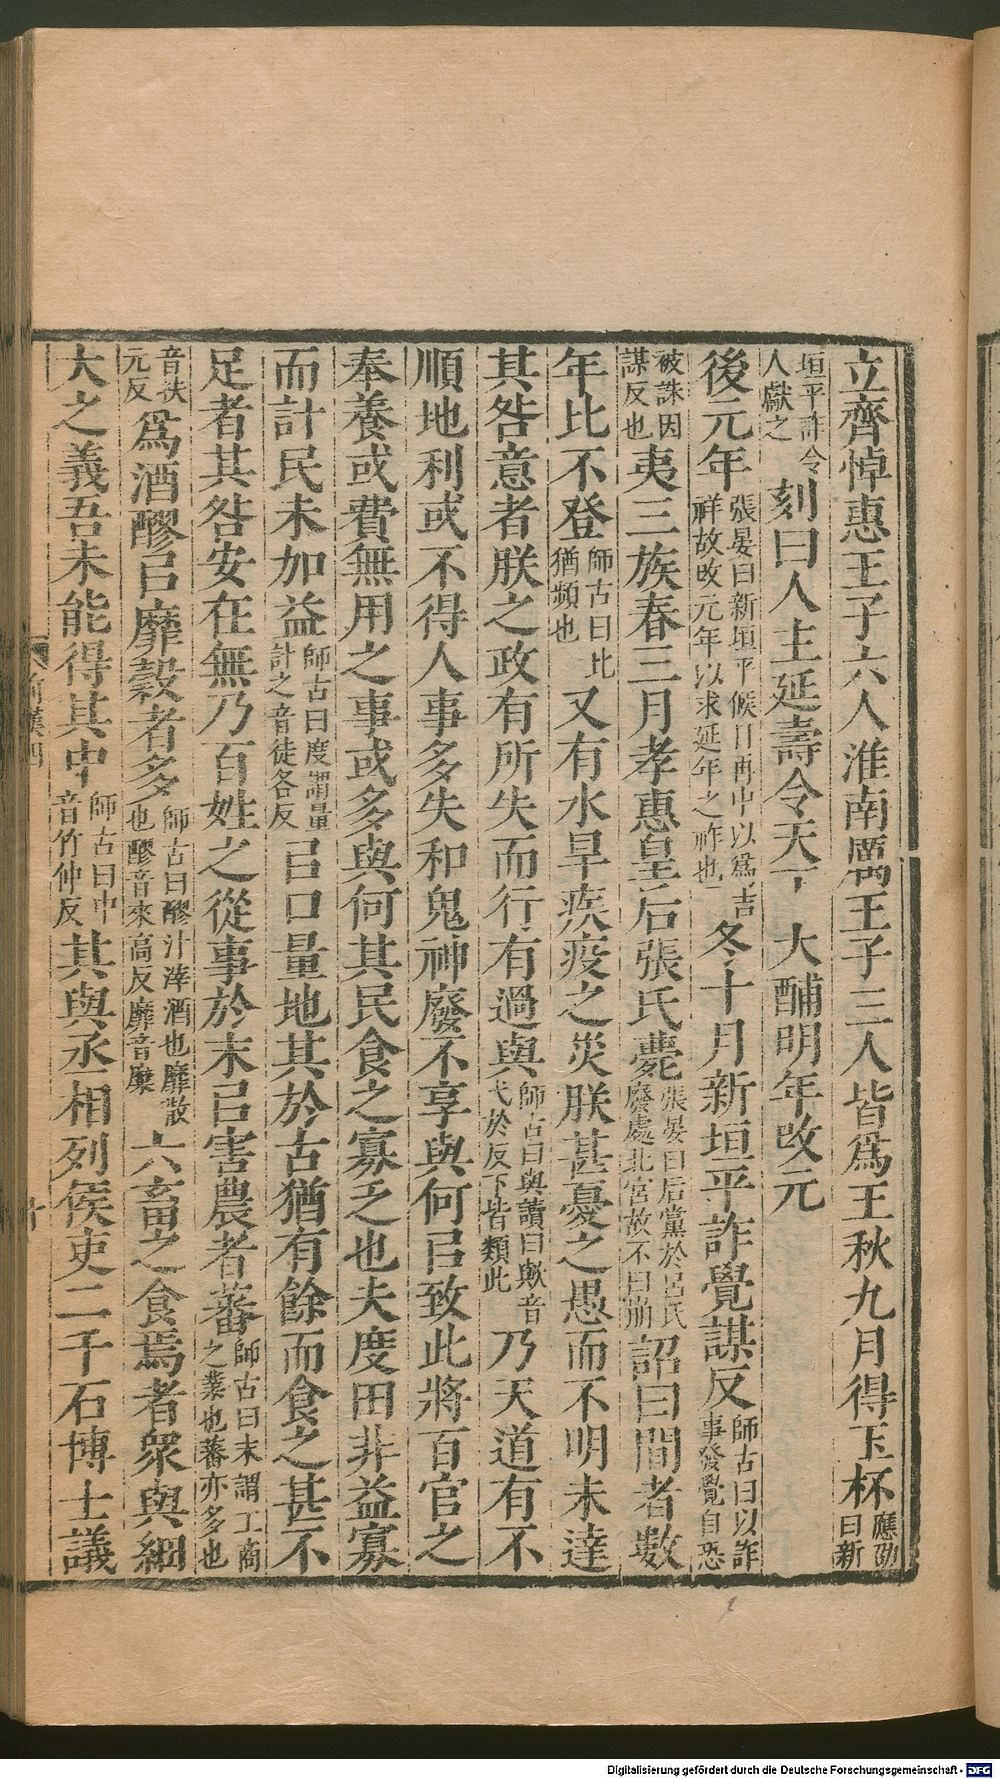 立齊悼惠王子六人淮南厲王子三人皆爲王秋九月得玉杯應劭曰新
垣平詐令人獻之刻曰人主延壽令天下大酺明年改元
後元年張晏曰新垣平候日再中以爲吉祥故改元年以求延年之祚也冬十月新垣平詐覺謀反師古曰以詐事發覺自恐
被誅因謀反也夷三族春三月孝惠皇后張氏薨張晏曰后黨於呂氏廢處北宮故不曰崩詔曰間者數
年比不登師古曰比猶頻也又有水旱疾疫之災朕甚憂之愚而不明未達
其咎意者朕之政有所失而行有過與師古曰與讀曰歟音弋於反下皆類此乃天道有不
順地利或不得人事多失和鬼神廢不享與何㠯致此將百官之
奉養或費無用之事或多與何其民食之寡乏也夫度田非益寡
而計民未加益師古曰度謂量計之音徒各反㠯口量地其於古猶有餘而食之甚不
足者其咎安在無乃百姓之從事於末㠯害農者蕃師古曰末謂工商之業也蕃亦多也
音扶元反爲酒醪㠯靡穀者多師古曰醪汁滓酒也靡散也醪音來高反靡音糜六畜之食焉者衆與細
大之義吾未能得其中師古曰中音竹仲反其與丞相列侯吏二千石博士議
前漢四
Digitalisierung gefördert durch die Deutsche Forschungsgemeinschaft - DFG